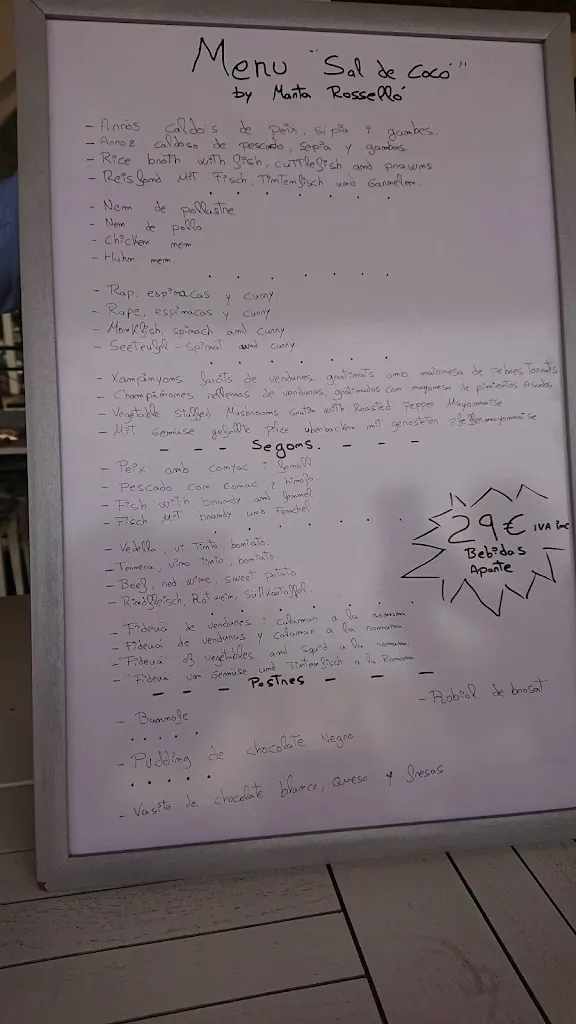 Menu "Sal de Cocó"
by Marta Rosselló
- Arròs caldós de peix, sípia i gambes.
- Arroz caldoso de pescado, sepia y gambas.
- Rice broth with fish, cuttlefish and prawns.
- Reisfond Mit Fisch, Tintenfisch und Garnelen.
- Nem de pollastre
- Nem de pollo
- Chicken nem
- Huhn nem
- Rap, espinacas y curry
- Rape, espinacas y curry
- Monkfish, spinach and curry
- Seeteufel - spinat und curry.
- Xampinyons farcits de verdures, gratinats amb maionesa de pebres Torrats
- Champiñones rellenos de verduras, gratinados con mayonesa de pimientos Asados
- Vegetable Stuffed Mushrooms Gratin with Roasted Pepper Mayonnaise
- Mit Gemüse gefüllte pilze überbacken mit gerösteten pfeffermayonnaise
- - - Segons. - - -
- Peix amb conyac i fonoll
- Pescado com coñac y hinojo.
- Fish with brandy and fennel
- Fisch Mit brandy und Fenchel
29€ IVA inc
Bebidas
Aparte
- Vedella, vi Tinto, boniato.
- Ternera, vino Tinto, boniato.
- Beef, red wine, sweet potato
- Rindfleisch, Rotwein, Süßkartoffel.
- "Fideuà" de verdures i calamar a la romana
- Fideuá de verduras y calamar a la romana
- "Fideuá" of vegetables and squid a la romana
- "Fideuá" von Gemüse und Tintenfisch a la Romana
- - - Postres - - -
- Bannofe
- Robiol de brosat
- Pudding de chocolate Negro
- Vasito de chocolate blanco, queso y fresas